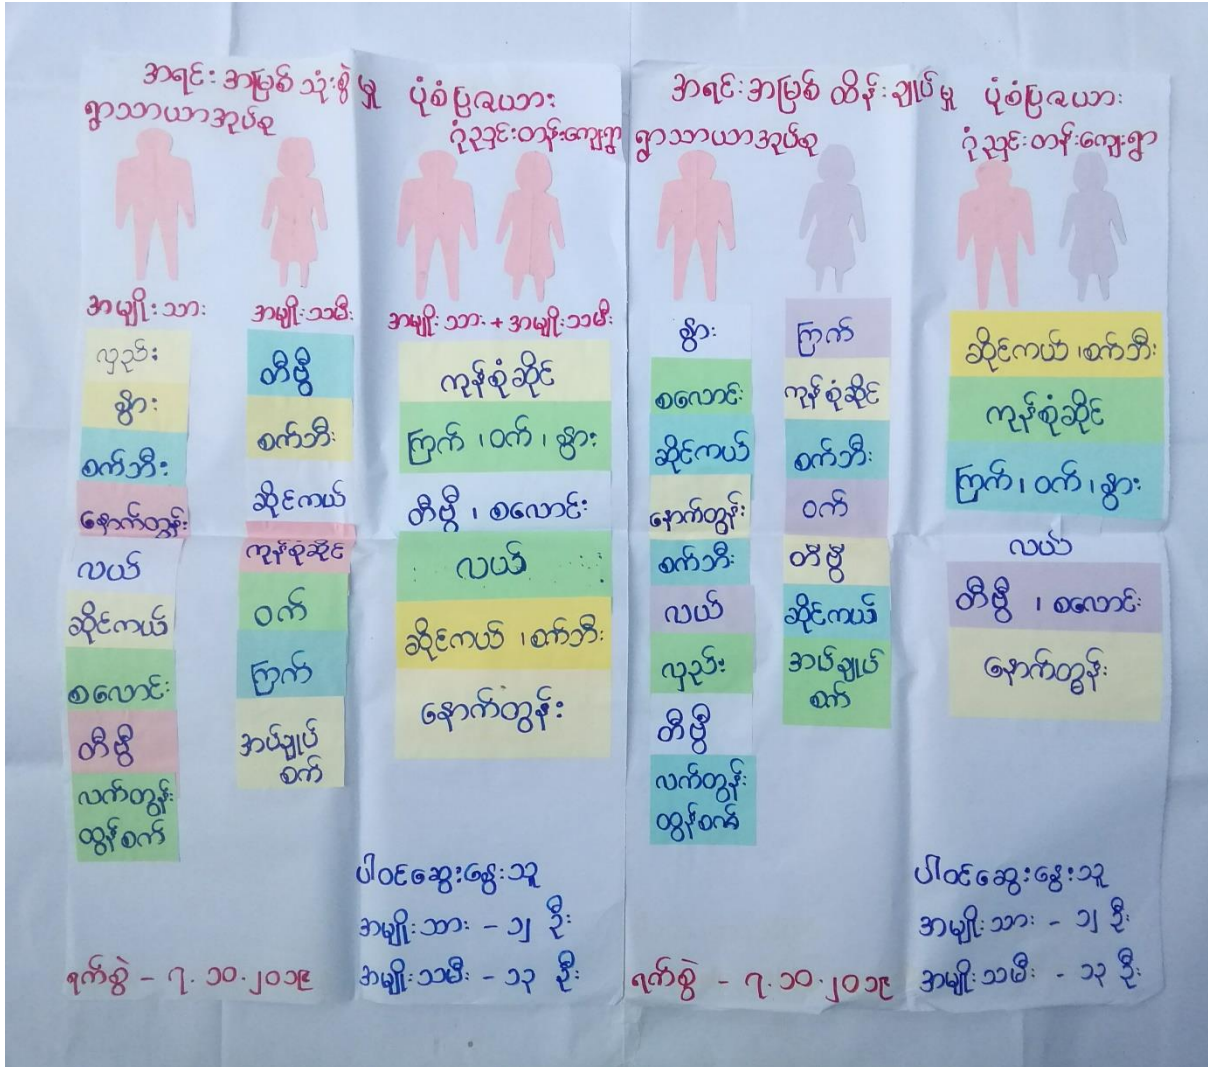 အရင်းအမြစ်သုံးစွဲမှု ပုံစံပြဇယား
ရွာသာယာအုပ်စု ဂုံညှင်းတန်းကျေးရွာ
အမျိုးသား
လှည်း
နွား
စက်ဘီး
နောက်တွန်း
လယ်
ဆိုင်ကယ်
စလောင်း
တီဗွီ
လက်တွန်း
ထွန်စက်
အမျိုးသမီး
တီဗွီ
စက်ဘီး
ဆိုင်ကယ်
ကုန်စုံဆိုင်
ဝက်
ကြက်
အပ်ချုပ်
စက်
အမျိုးသား + အမျိုးသမီး
ကုန်စုံဆိုင်
ကြက်၊ ဝက်၊ နွား
တီဗွီ ၊ စလောင်း
လယ်
ဆိုင်ကယ် ၊ စက်ဘီး
နောက်တွန်း
ပါဝင်ဆွေးနွေးသူ
အမျိုးသား - ၁၂ ဦး
အမျိုးသမီး - ၁၃ ဦး
ရက်စွဲ - ၇.၁၀.၂၀၁၉
အရင်းအမြစ် ထိန်းချုပ်မှု ပုံစံပြဇယား
ရွာသာယာအုပ်စု ဂုံညှင်းတန်းကျေးရွာ
နွား
စလောင်း
ဆိုင်ကယ်
နောက်တွန်း
စက်ဘီး
လယ်
လှည်း
တီဗွီ
လက်တွန်း
ထွန်စက်
ကြက်
ကုန်စုံဆိုင်
စက်ဘီး
ဝက်
တီဗွီ
ဆိုင်ကယ်
အပ်ချုပ်
စက်
ဆိုင်ကယ် ၊ စက်ဘီး
ကုန်စုံဆိုင်
ကြက်၊ ဝက်၊ နွား
လယ်
တီဗွီ ၊ စလောင်း
နောက်တွန်း
ပါဝင်ဆွေးနွေးသူ
အမျိုးသား - ၁၂ ဦး
အမျိုးသမီး - ၁၃ ဦး
ရက်စွဲ - ၇.၁၀.၂၀၁၉